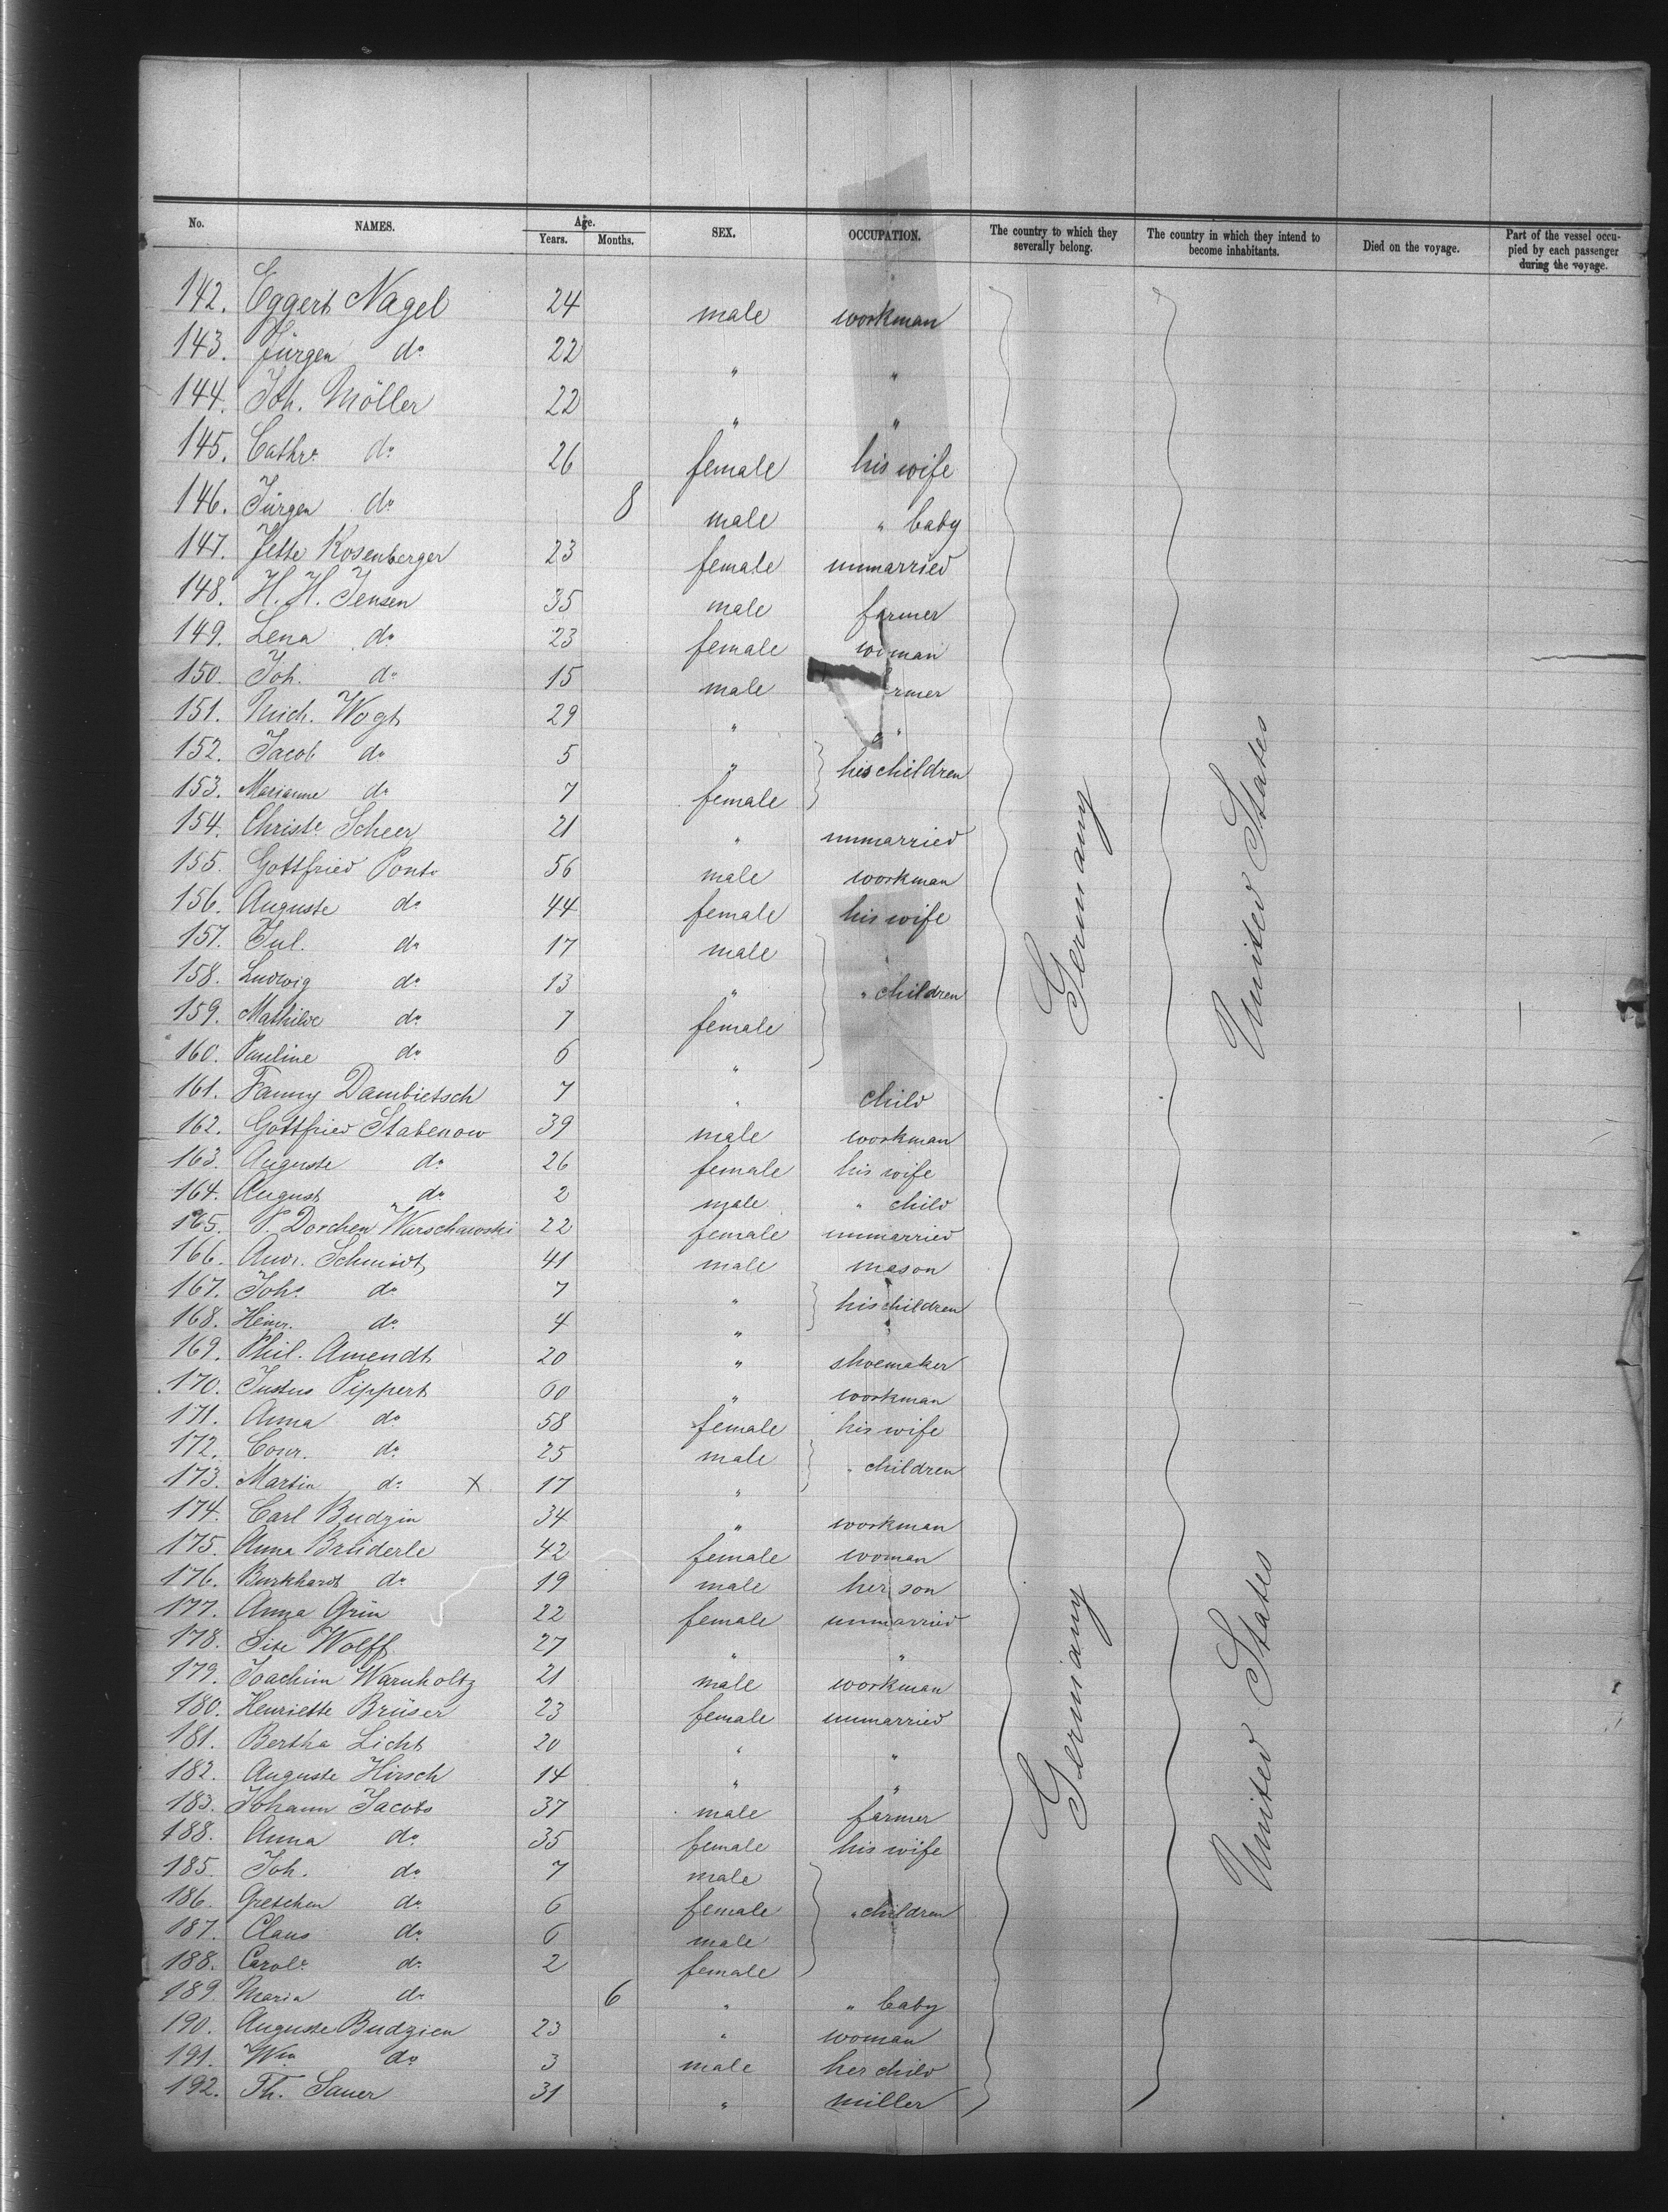 No. NAMES. Age. Years. Months. SEX. OCCUPATION. The country to which they severally belong. The country in which they intend to become inhabitants. Died on the voyage. Part of the vessel occupied by each passenger during the voyage.
142. Eggert Nagel 24 male workman
143. Jürgen do 22 " "
144. Joh. Möller 22 " "
145. Cathr. do 26 female his wife
146. Jürgen do 8 male " baby
147. Jette Rosenberger 23 female unmarried
148. H. H. Jensen 35 male farmer
149. Lena do 23 female woman
150. Joh. do 15 male farmer
151. Mich. Vogt 29 " "
152. Jacob do 5 " his children
153. Marianne do 7 female
154. Christe Scheer 21 " unmarried
155. Gottfried Ponto 56 male workman
156. Auguste do 44 female his wife
157. Jul. do 17 male
158. Ludwig do 13 " " children
159. Mathilde do 7 female
160. Pauline do 6 "
161. Fanny Dambietsch 7 " child
162. Gottfried Stabenow 39 male workman
163. Auguste do 26 female his wife
164. August do 2 male " child
165. Dorchen Warschawski 22 female unmarried
166. Andr. Schmidt 41 male mason
167. Johs do 7 " his children
168. Heinr. do 4 "
169. Phil. Amendt 20 " shoemaker
170. Justus Pippert 60 " workman
171. Anna do 58 female his wife
172. Conr. do 25 male " children
173. Martin do X 17 "
174. Carl Budzin 34 " workman
175. Anna Brüderle 42 female woman
176. Burkhardt do 19 male her son
177. Anna Grün 22 female unmarried
178. Sise Wolff 27 " "
179. Joachim Warnholtz 21 male workman
180. Henriette Brüser 23 female unmarried
181. Bertha Licht 20 " "
182. Auguste Hirsch 14 " "
183. Johann Jacobs 37 male farmer
188. Anna do 35 female his wife
185. Joh. do 7 male
186. Gretchen do 6 female " children
187. Claus do 6 male
188. Carole do 2 female
189. Maria do 6 " " baby
190. Auguste Budzien 23 " woman
191. Wm do 3 male her child
192. Th. Sauer 31 " miller
Germany
United States
Germany
United States